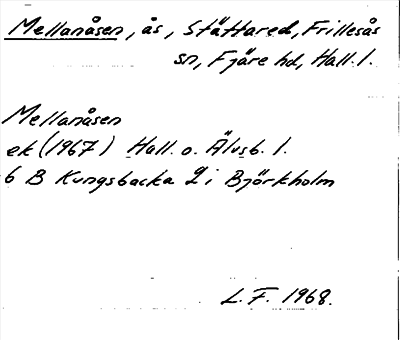 Mellanåsen, ås, Stättared, Frillesås
sn, Fjäre hd, Hall. l.
Mellanåsen
ek (1967) Hall. o. Älvsb. l.
6 B Kungsbacka 2 i Björkholm
L. F. 1968.